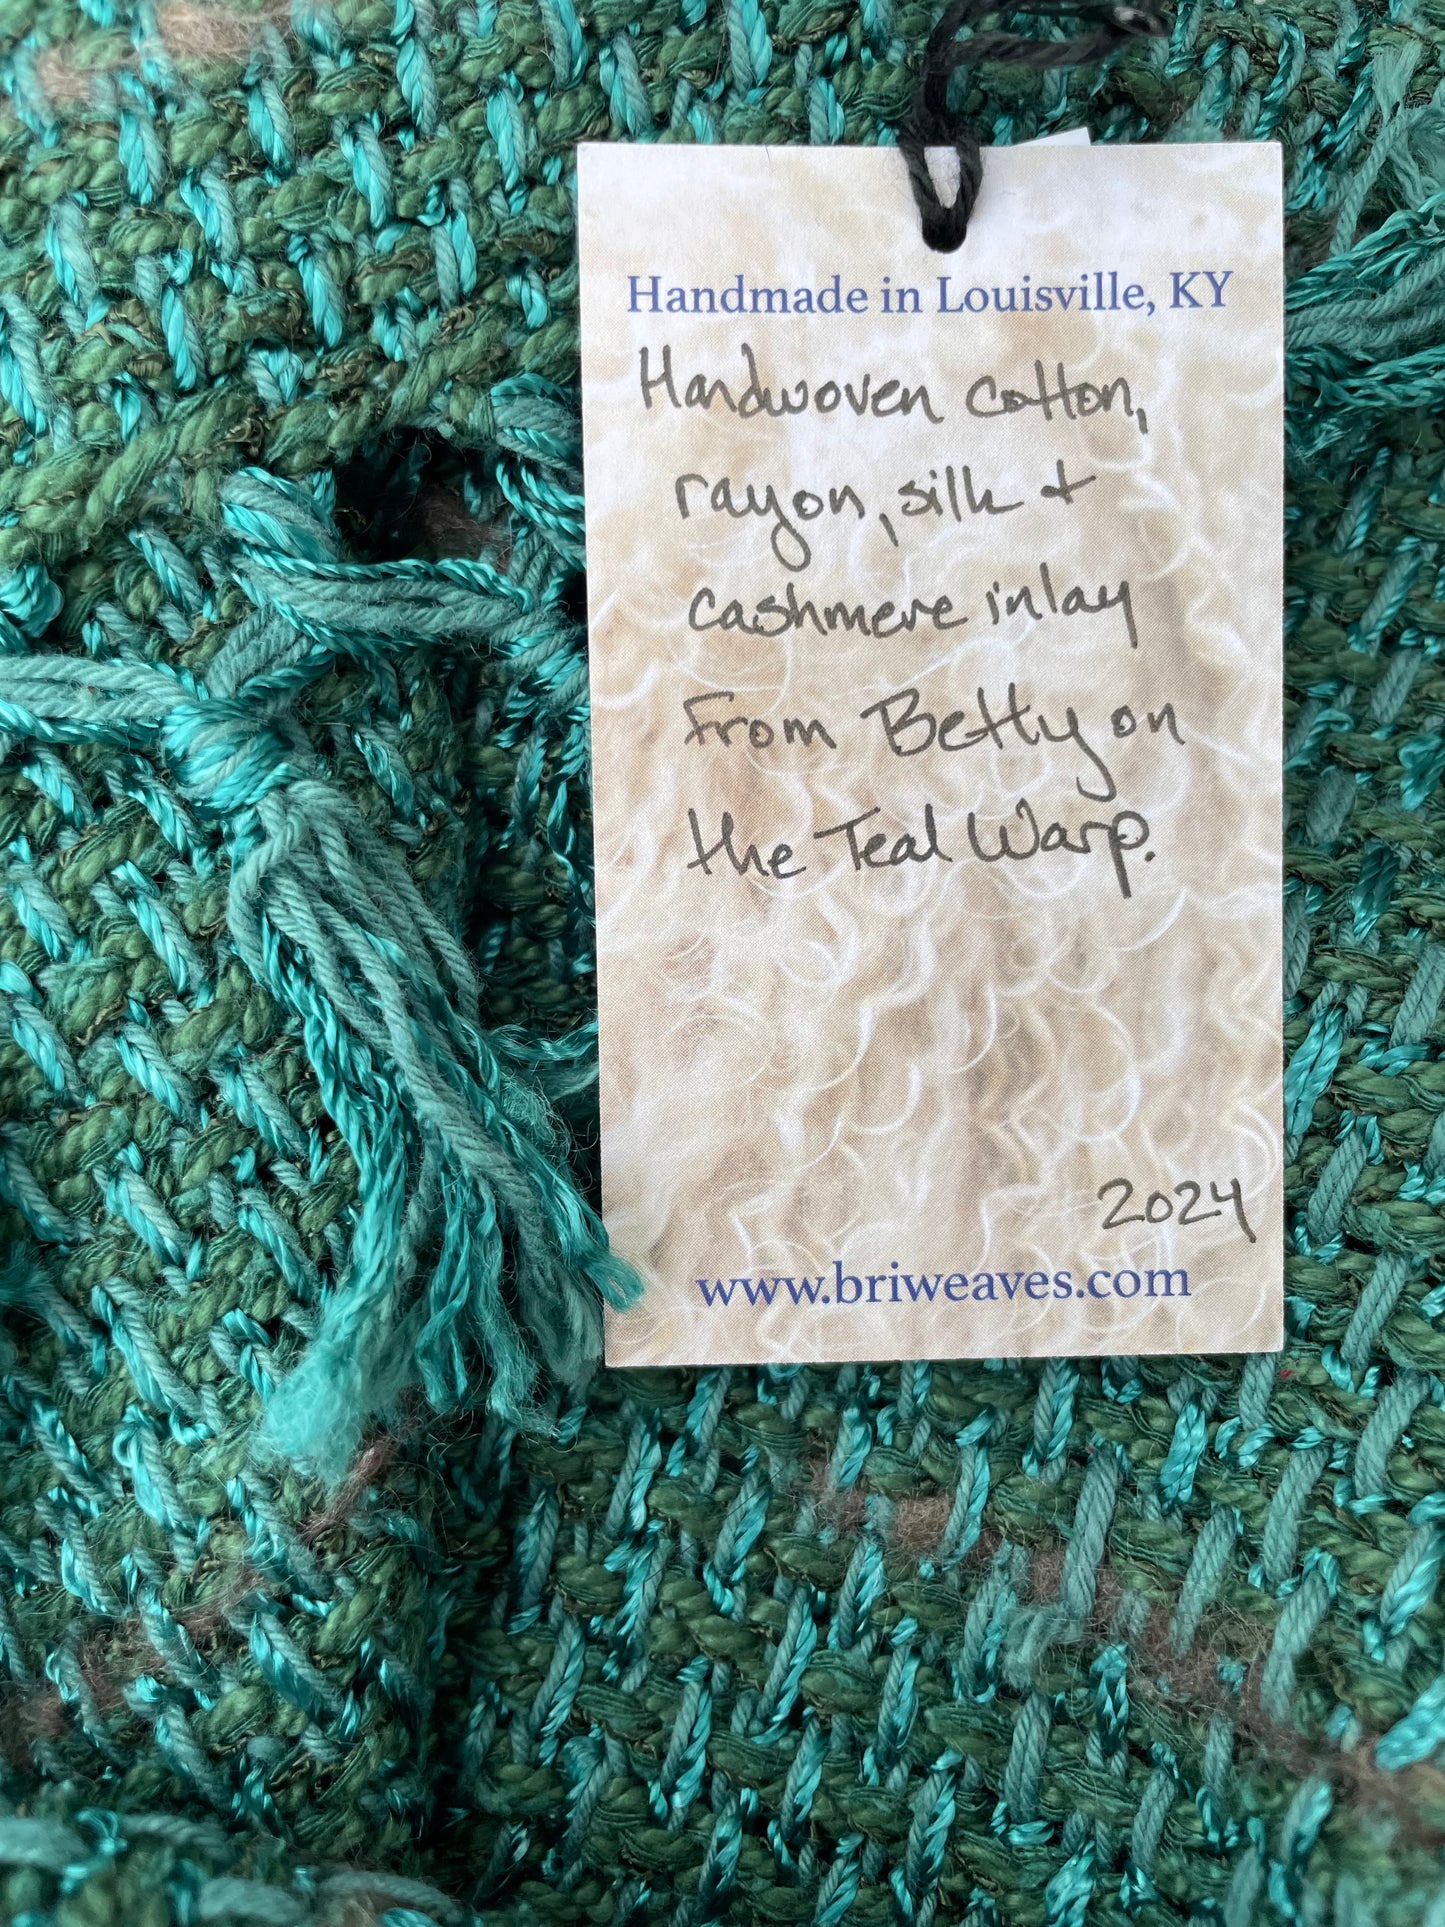 Handmade in Louisville, KY
Handwoven cotton,
rayon, silk +
cashmere inlay
From Betty on
the Teal Warp.
2024
www.briweaves.com